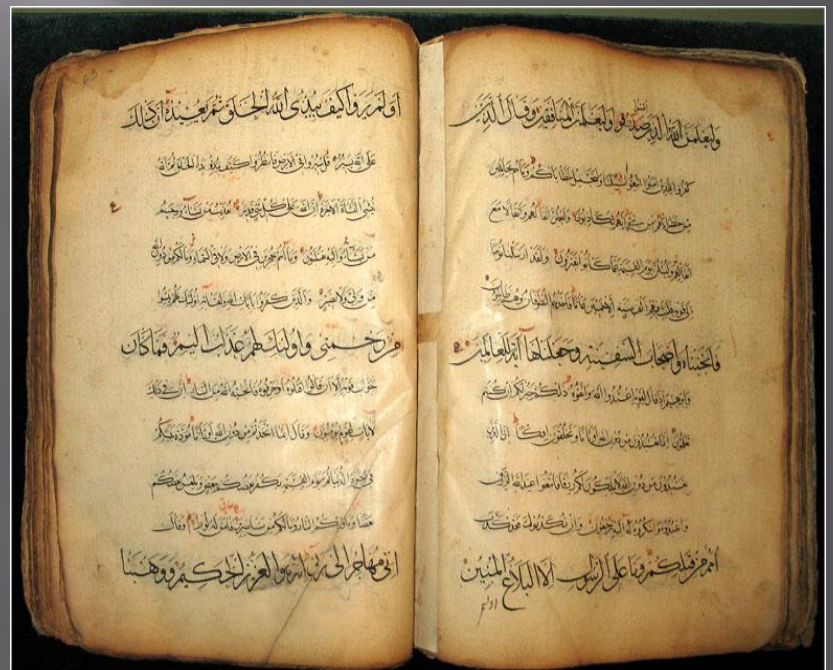 وليعلمن الله الذين صدقوا وليعلمن المنافقين وقال الذين
كفروا للذين آمنوا اتبعوا سبيلنا ولنحمل خطاياكم وما هم بحاملين
من خطاياهم من شيء انهم لكاذبون وليحملن اثقالهم واثقالا مع
اثقالهم وليسئلن يوم القيمة عما كانوا يفترون ولقد ارسلنا نوحا
الى قومه فلبث فيهم الف سنة الا خمسين عاما فاخذهم الطوفان وهم ظالمون
فانجيناه واصحاب السفينة وجعلناها آية للعالمين
وابرهيم اذ قال لقومه اعبدوا الله واتقوه ذلكم خير لكم ان كنتم
تعلمون انما تعبدون من دون الله اوثانا وتخلقون افكا ان الذين
تعبدون من دون الله لا يملكون لكم رزقا فابتغوا عند الله الرزق
واعبدوه واشكروا له اليه ترجعون وان تكذبوا فقد كذب
امم من قبلكم وما على الرسول الا البلاغ المبين
اولم
اولم يروا كيف يبدئ الله الخلق ثم يعيده ان ذلك
على الله يسير قل سيروا في الارض فانظروا كيف بدأ الخلق ثم الله
ينشئ النشأة الآخرة ان الله على كل شيء قدير يعذب من يشاء ويرحم
من يشاء واليه تقلبون وما انتم بمعجزين في الارض ولا في السماء وما لكم من دون الله
من ولي ولا نصير والذين كفروا بآيات الله ولقائه اولئك يئسوا
من رحمتي واولئك لهم عذاب اليم فما كان
جواب قومه الا ان قالوا اقتلوه او حرقوه فانجيه الله من النار ان في ذلك
لآيات لقوم يؤمنون وقال انما اتخذتم من دون الله اوثانا مودة بينكم
في الحيوة الدنيا ثم يوم القيمة يكفر بعضكم ببعض ويلعن بعضكم
بعضا ومأويكم النار وما لكم من ناصرين فآمن له لوط وقال
اني مهاجر الى ربي انه هو العزيز الحكيم ووهبنا